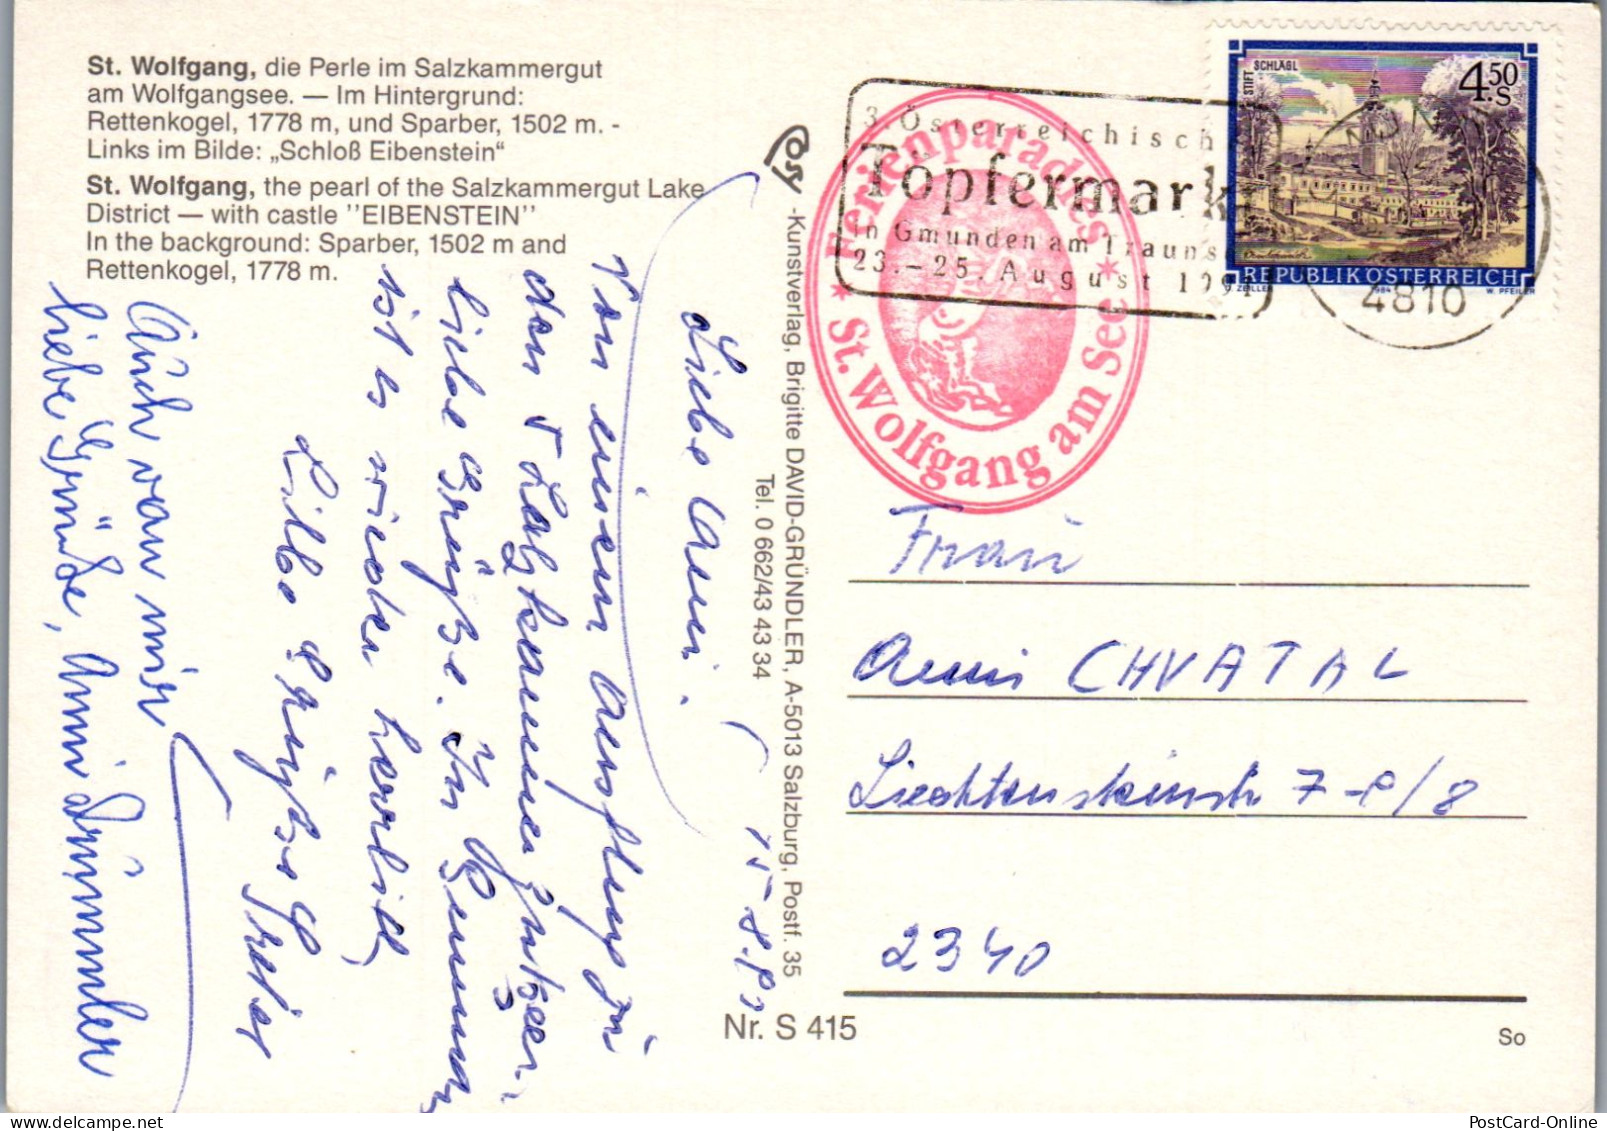 St. Wolfgang, die Perle im Salzkammergut
am Wolfgangsee. — Im Hintergrund:
Rettenkogel, 1778 m, und Sparber, 1502 m. -
Links im Bilde: „Schloß Eibenstein“
St. Wolfgang, the pearl of the Salzkammergut Lake
District — with castle ''EIBENSTEIN''
In the background: Sparber, 1502 m and
Rettenkogel, 1778 m.
Liebe Anni.
Von einem Ausflug in
den 5 Salzkammergutseen
liebe Grüße. In Gmunden
ist es wieder herrlich,
Liebe Grüße Greter
Auch von mir
liebe Grüße, Anni Drümmler
Cosy
-Kunstverlag, Brigitte DAVID-GRÜNDLER, A-5013 Salzburg, Postf. 35
Tel. 0 662/43 43 34
Nr. S 415
3. Österreichisch
Töpfermarkt
in Gmunden am Trauns
23.–25. August 1991
Ferienparadies
* St. Wolfgang am See *
STIFT SCHLÄGL
4.50 S
REPUBLIK ÖSTERREICH
ZEILLER
1984
W. PFEILER
4810
Frau
Anni CHVATAL
Liechtensteinstr 7-
/8
2340
So
PostCard-Online